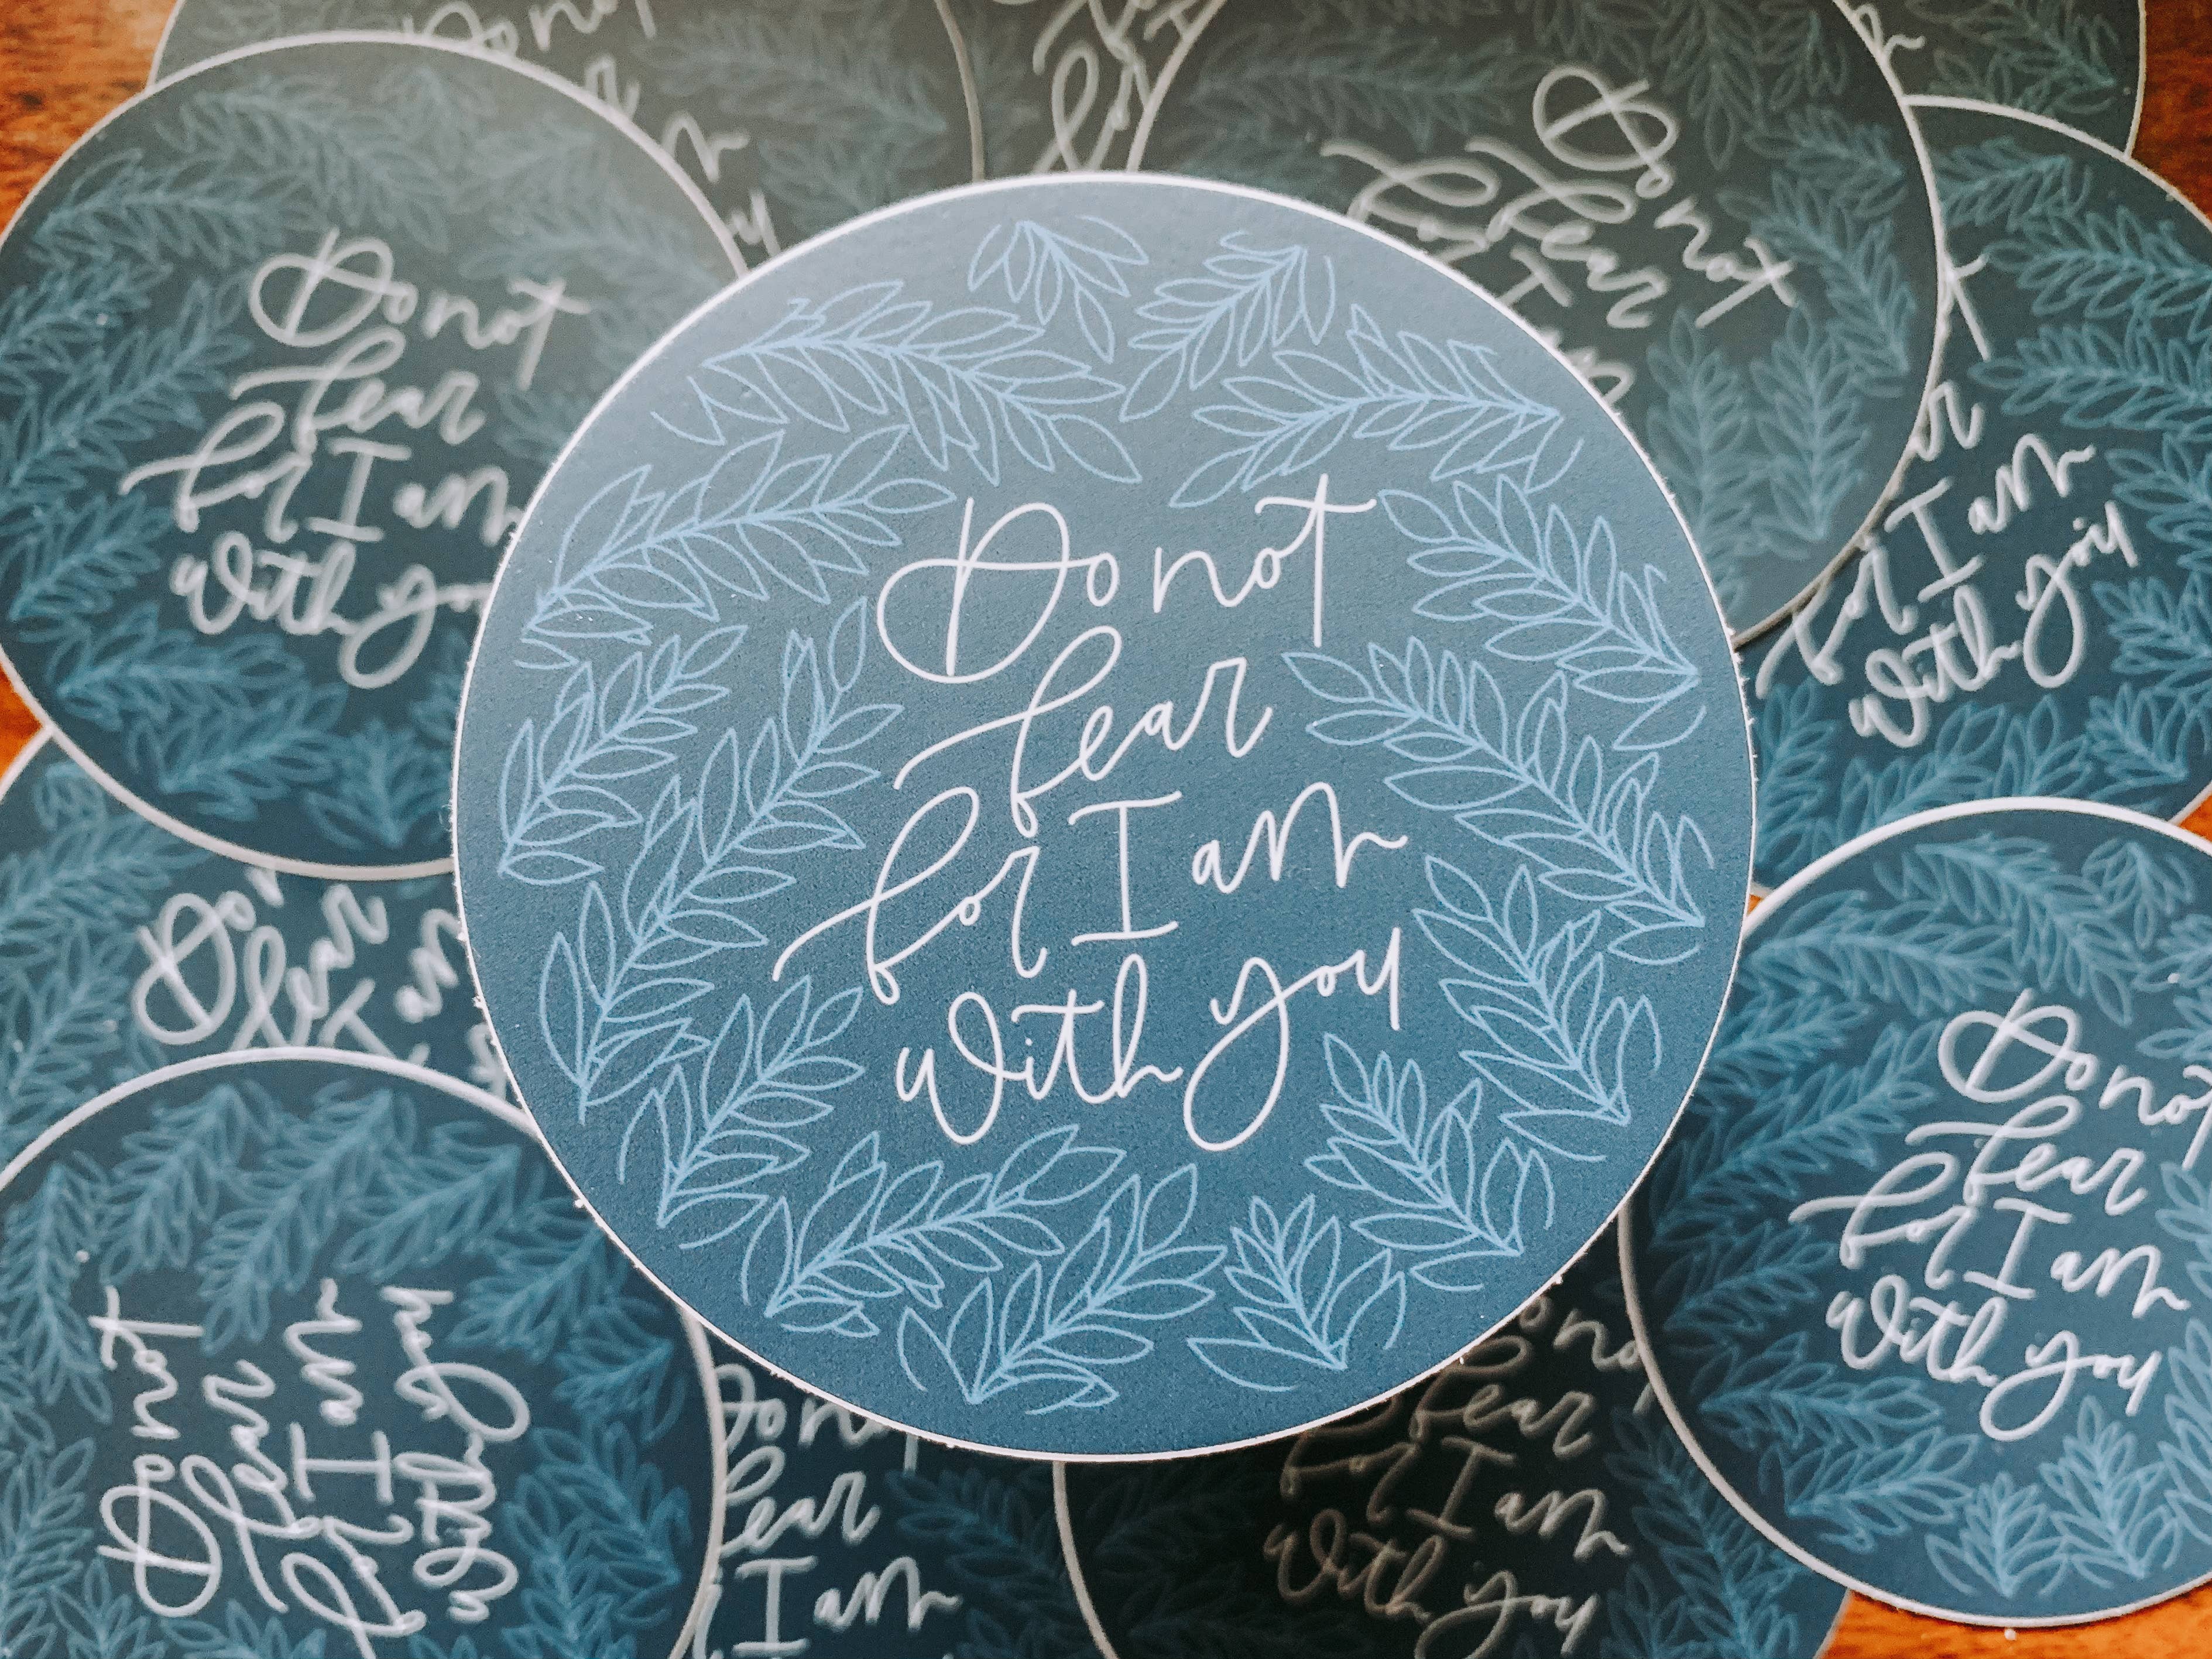 Do not
fear
for I am
with you
Do not
fear
for I am
with
Do not
fear
for I
for I am
with you
fear
I am
Do not
fear
for I am
with you
Do not
fear
for I am
with you
fear
I am
fear
for I am
with you